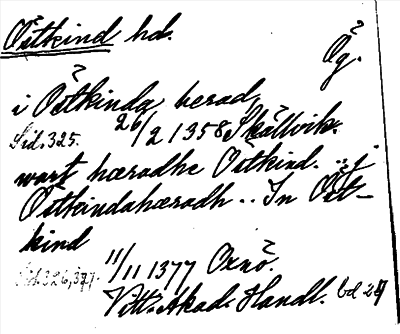 Östkind hd.
Ög.
i Östkinda herad,
Sid. 325. 26/2 1358 Skällvik.
wart hæradhe Östkind. .. j
Östkindahæradh .. In Öst-
kind
Sid. 326, 327. 11/11 1377 Oxnö.
Vitt. Akad. Handl. bd 29